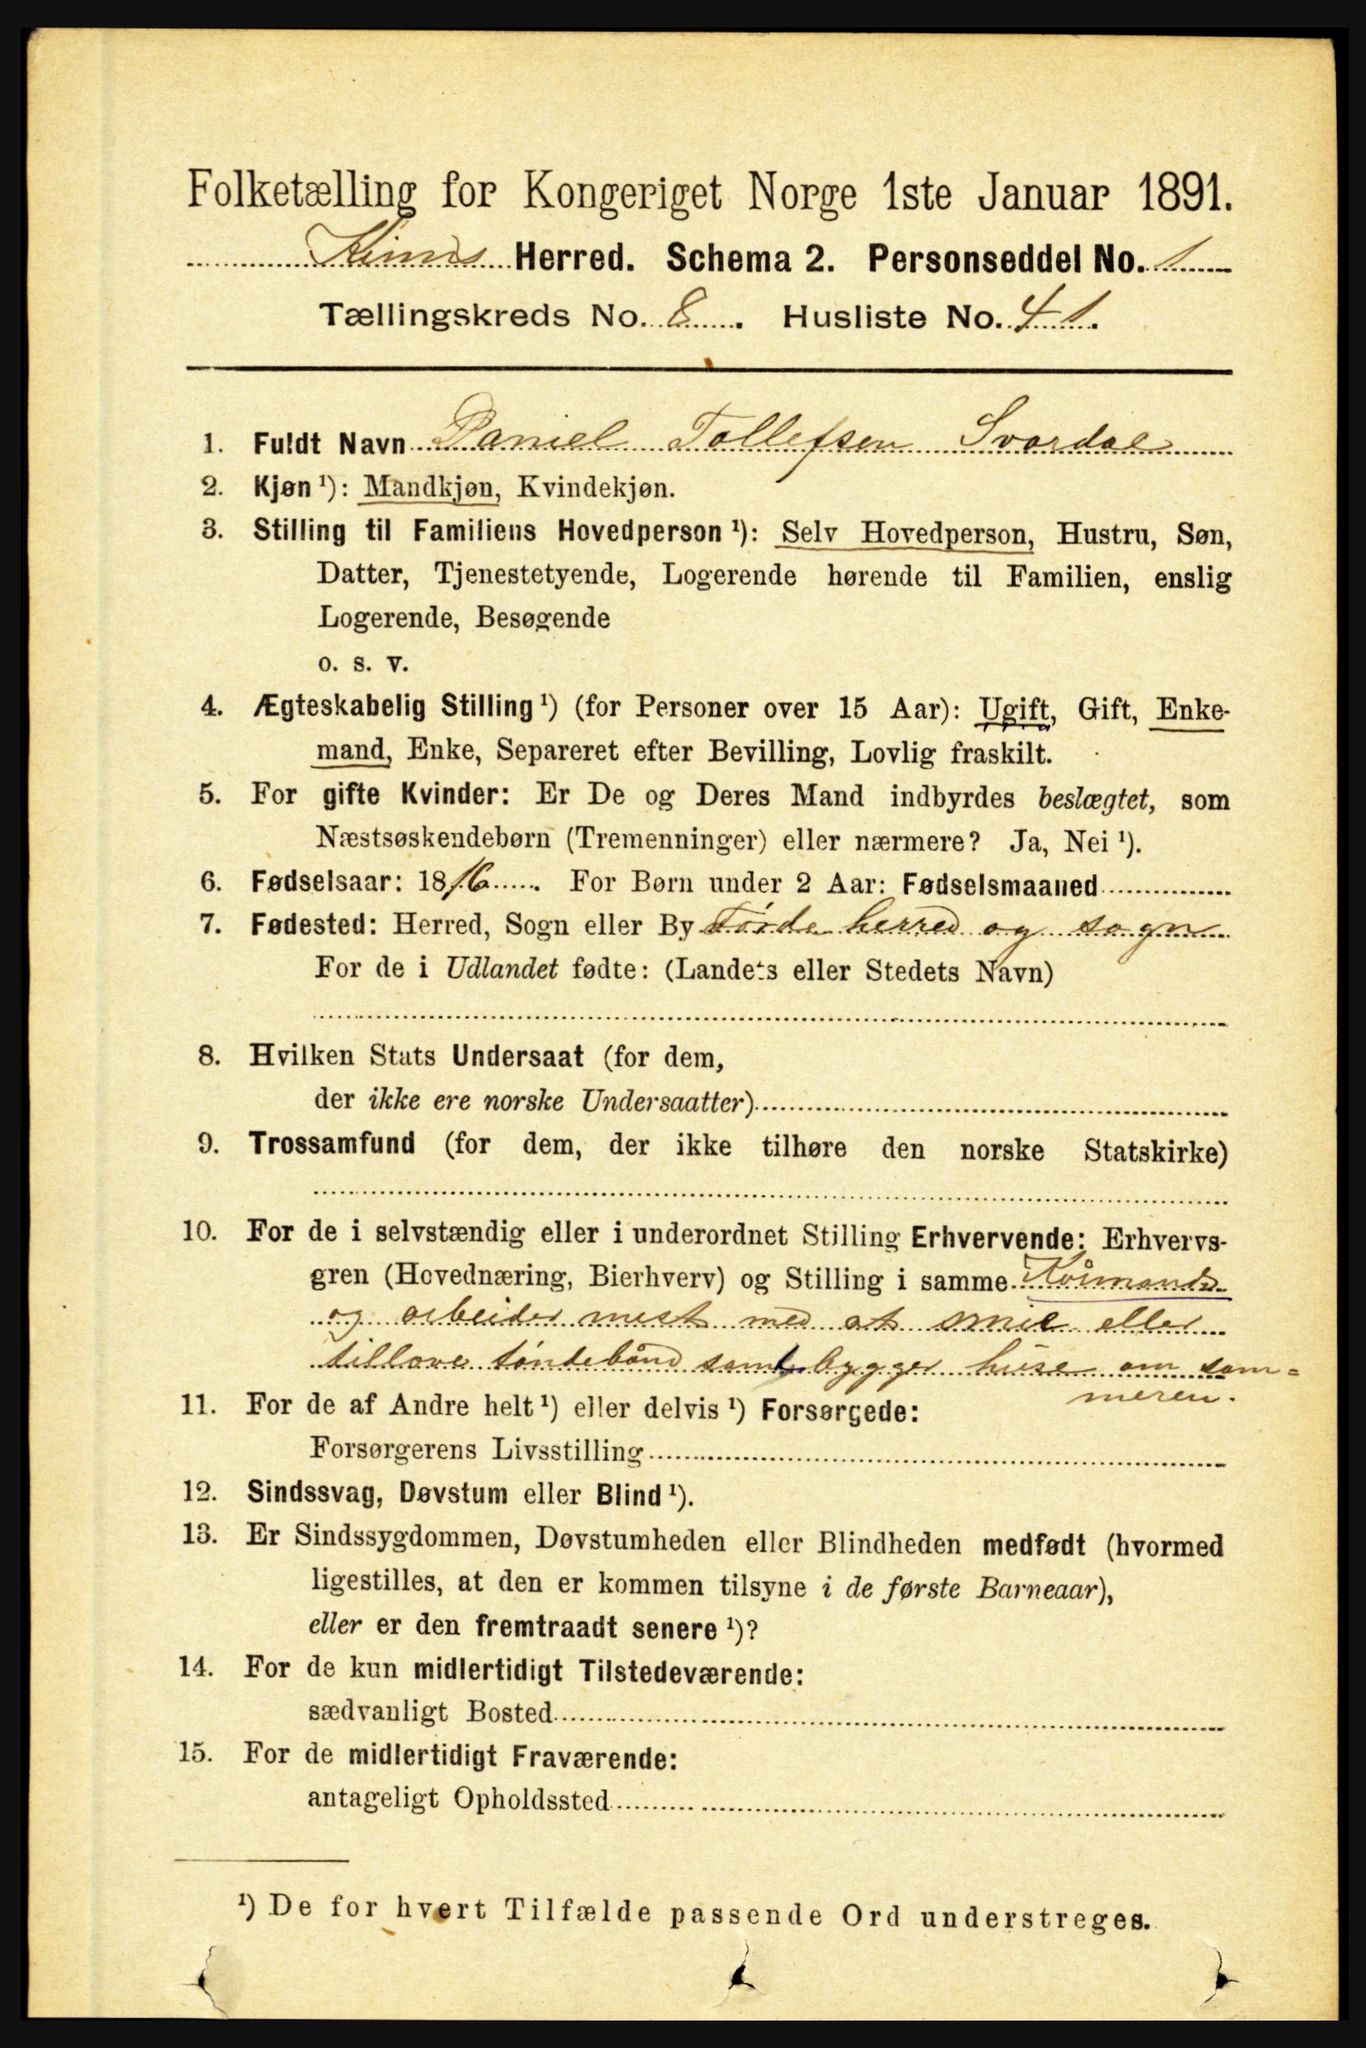 Folketælling for Kongeriget Norge 1ste Januar 1891.
Kinns Herred. Schema 2. Personseddel No. 1
Tællingskreds No. 8. Husliste No. 41.
1. Fuldt Navn Daniel Tollefsen Svardal
2. Kjøn ¹): Mandkjøn, Kvindekjøn.
3. Stilling til Familiens Hovedperson ¹): Selv Hovedperson, Hustru, Søn,
Datter, Tjenestetyende, Logerende hørende til Familien, enslig
Logerende, Besøgende
o. s. v.
4. Ægteskabelig Stilling ¹) (for Personer over 15 Aar): Ugift, Gift, Enke-
mand, Enke, Separeret efter Bevilling, Lovlig fraskilt.
5. For gifte Kvinder: Er De og Deres Mand indbyrdes beslægtet, som
Næstsøskendebørn (Tremenninger) eller nærmere? Ja, Nei ¹).
6. Fødselsaar: 1816. For Børn under 2 Aar: Fødselsmaaned
7. Fødested: Herred, Sogn eller By Førde herred og sogn
For de i Udlandet fødte: (Landets eller Stedets Navn)
8. Hvilken Stats Undersaat (for dem,
der ikke ere norske Undersaatter)
9. Trossamfund (for dem, der ikke tilhøre den norske Statskirke)
10. For de i selvstændig eller i underordnet Stilling Erhvervende: Erhvervs-
gren (Hovednæring, Bierhverv) og Stilling i samme Kårmand
og arbeider mest med at smie eller
tillave tøndebånd samt bygger huse om som=
meren.
11. For de af Andre helt ¹) eller delvis ¹) Forsørgede:
Forsørgerens Livsstilling
12. Sindssvag, Døvstum eller Blind ¹).
13. Er Sindssygdommen, Døvstumheden eller Blindheden medfødt (hvormed
ligestilles, at den er kommen tilsyne i de første Barneaar),
eller er den fremtraadt senere ¹)?
14. For de kun midlertidigt Tilstedeværende:
sædvanligt Bosted
15. For de midlertidigt Fraværende:
antageligt Opholdssted
¹) De for hvert Tilfælde passende Ord understreges.